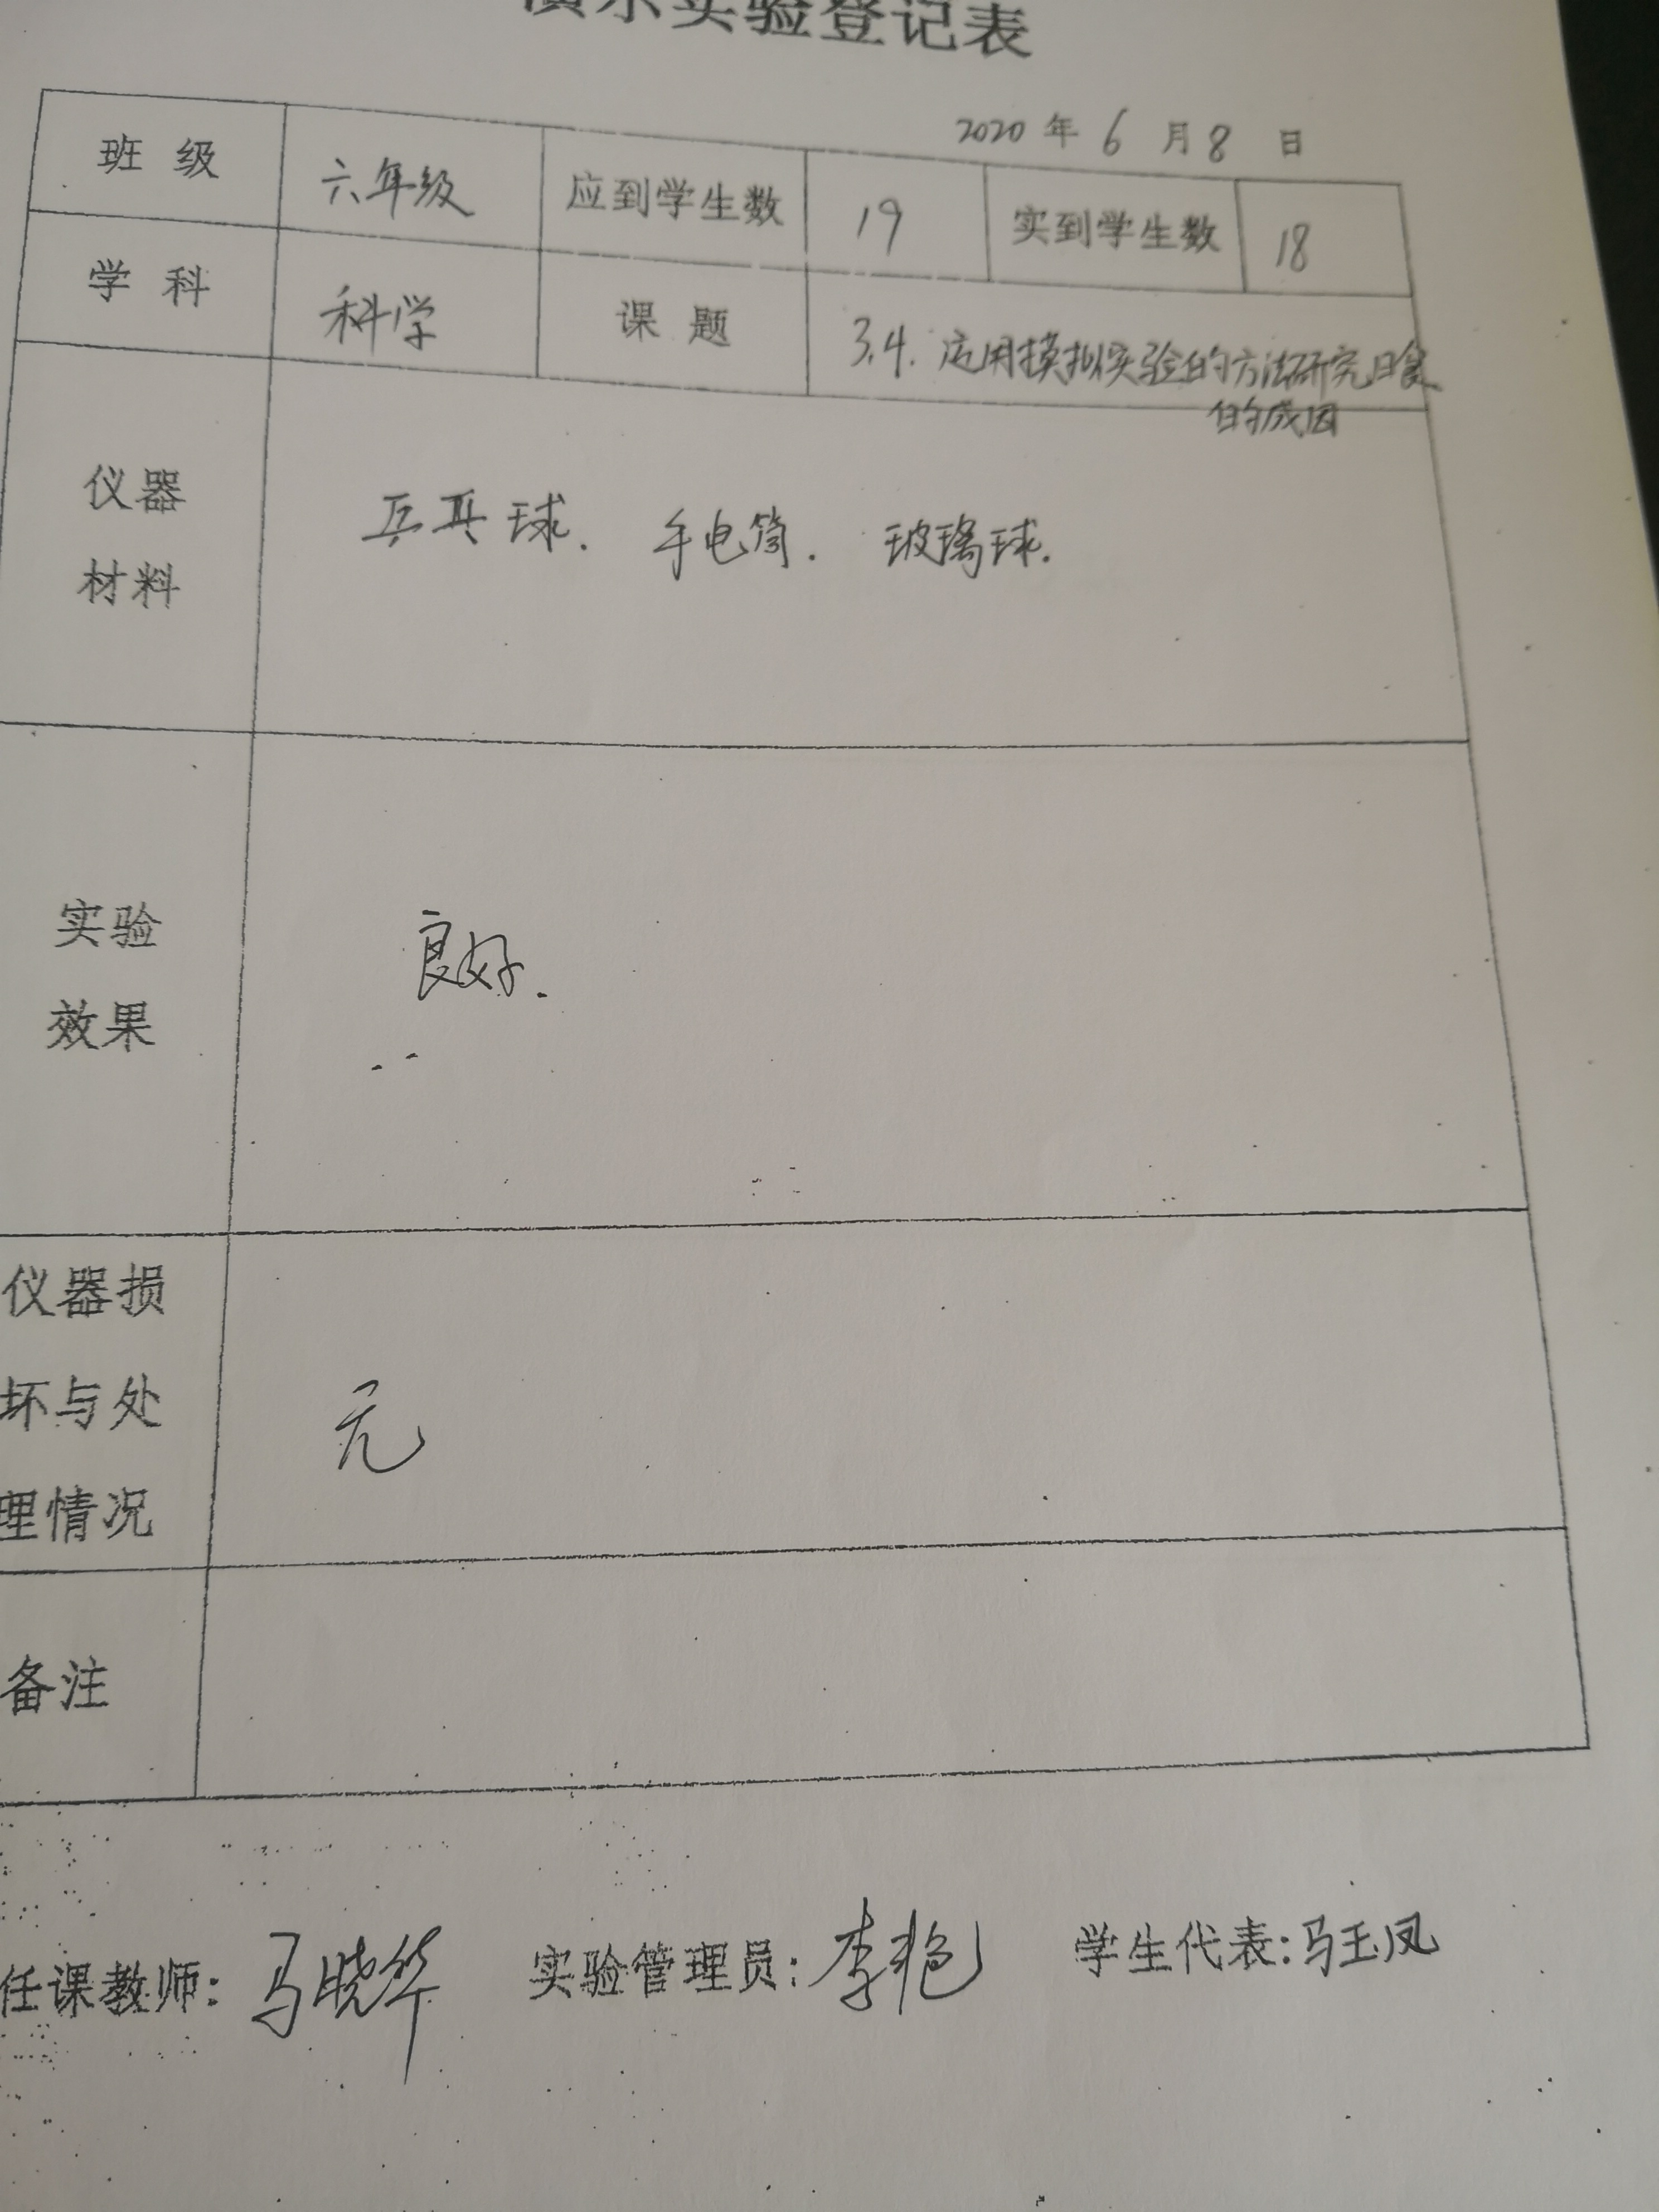 演示实验登记表
2020 年 6 月 8 日
班 级 六年级 应到学生数 19 实到学生数 18
学 科 科学 课 题 3.4. 应用摸拟实验的方法研究日食
的成因
仪器
材料
乒乓球. 手电筒. 玻璃球.
实验
效果
良好.
仪器损
坏与处
理情况
无
备注
任课教师: 马晓华 实验管理员: 李艳 学生代表: 马玉凤